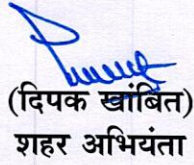 (दिपक खांबित)
शहर अभियंता